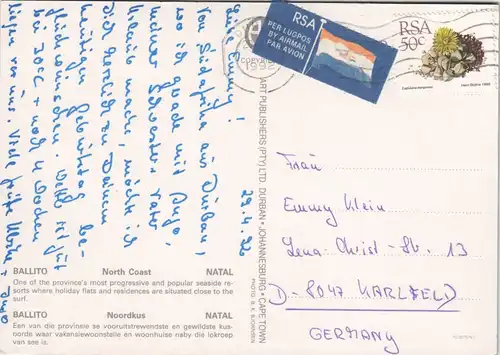 29.4.92
Liebe Emmy!
Von Südafrika aus Durban,
wo ich grade mit Ingo,
meiner Schwester + Vater
Urlaub mache, möchte ich
Dich herzlich zu Deinem
heutigen Geburtstag be-
glückwünschen. Wetter ist gut
bei 30°C + noch 4 Wochen
liegen vor uns. Viele
+ Ingo
BALLITO North Coast NATAL
One of the province's most progressive and popular seaside re-
sorts where holiday flats and residences are situated close to the
surf.
BALLITO Noordkus NATAL
Een van die provinsie se vooruitstrewendste en gewildste kus-
oorde waar vakansiewoonstelle en woonhuise naby die lokroep
van see is.
ART PUBLISHERS (PTY) LTD. DURBAN • JOHANNESBURG • CAPE TOWN
1992
RSA
PER LUGPOS
BY AIRMAIL
PAR AVION
RSA
50c
Frau
Emmy Klein
Lena-Christ-Str. 13
D-8047 KARLSFELD
GERMANY